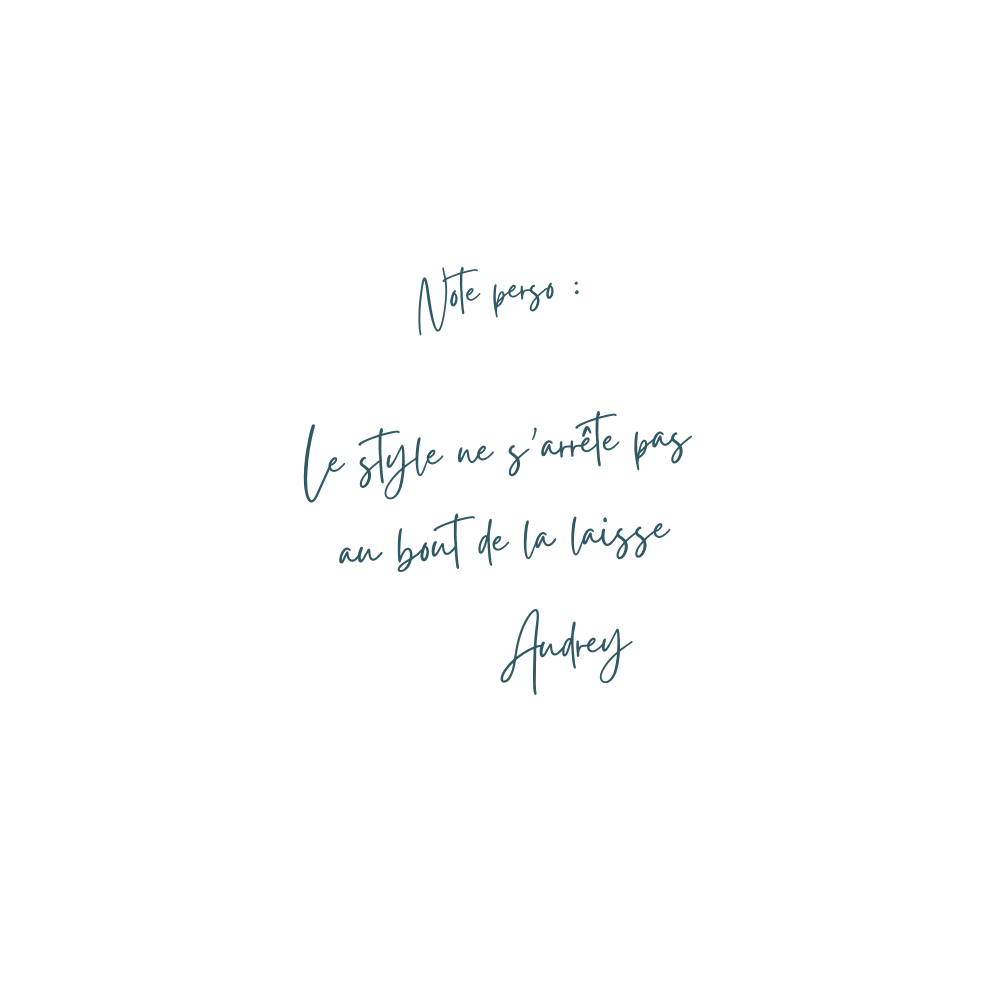 Note perso :
Le style ne s'arrête pas
au bout de la laisse
Audrey